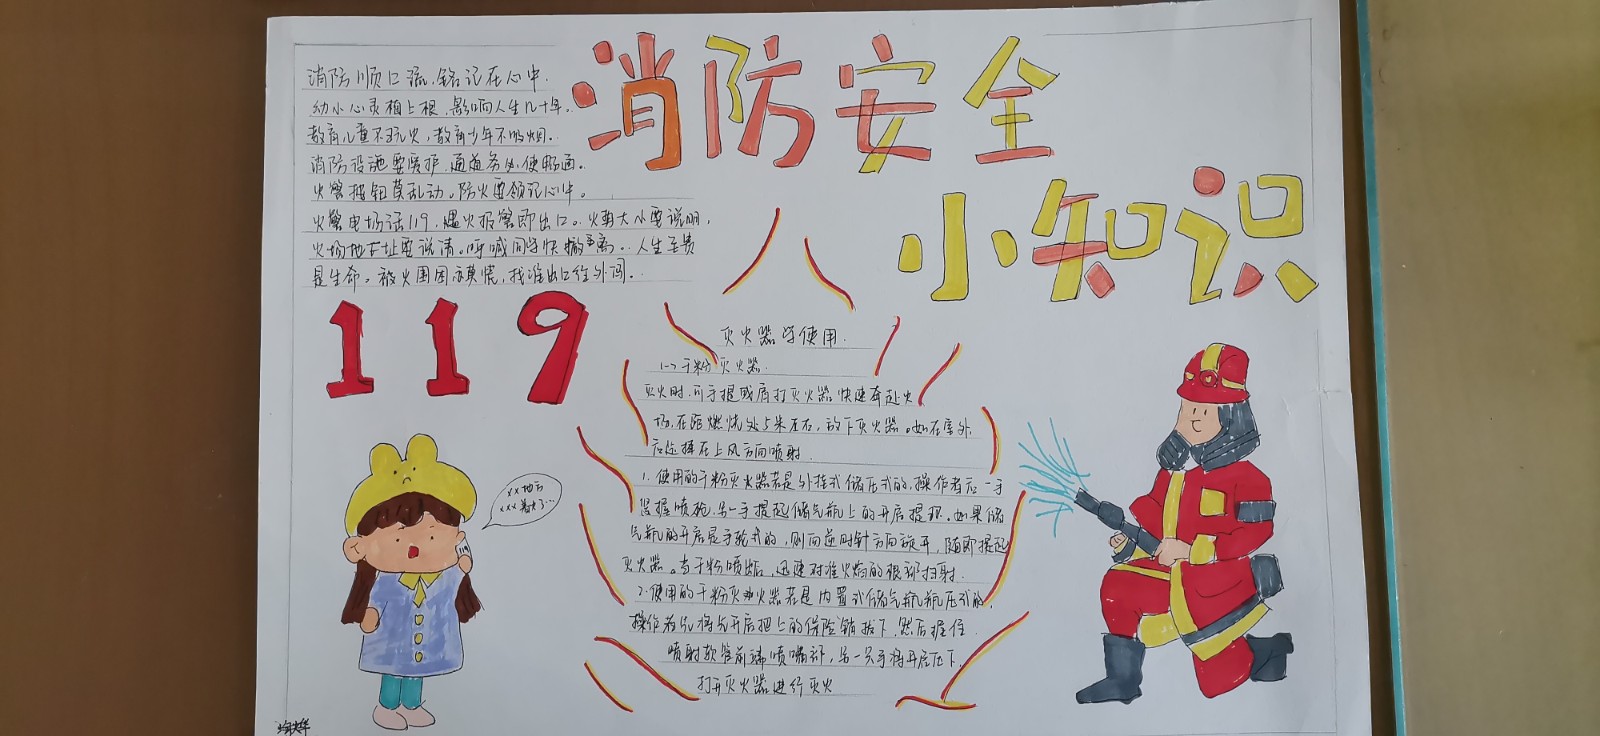 消防安全
小知识
消防顺口溜,铭记在心中.
幼小心灵植上根,影响人生几十年。
教育儿童不玩火,教育少年不吸烟.
消防设施要爱护,通道务必使畅通。
火警按钮莫乱动。防火要领记心中。
火警电场话119,遇火报警即出口。火势大小要说明,
火场地古址要说清。呼喊同学快撤离。人生至贵
是生命。被火围困亦莫慌,找准出口往外闯。
119
灭火器的使用.
干粉灭火器.
灭火时,可手提或肩扛灭火器快速奔赴火
场,在距燃烧处5米左右,放下灭火器。如在室外
应选择在上风方向喷射.
1.使用的干粉灭火器若是外挂式储压式的,操作者应一手
紧握喷枪,另一手提起储气瓶上的开启提环。如果储
气瓶的开启是手轮式的,则向逆时针方向旋开,随即提起
灭火器。当干粉喷出后,迅速对准火焰的根部扫射.
2.使用的干粉灭火器若是内置式储气瓶瓶压式的,
操作者先将先开启把上的保险销拔下,然后握住
喷射软管前端喷嘴部,另一只手将开启压下,
打开灭火器进行灭火
xx地方
xxx着火了…
119